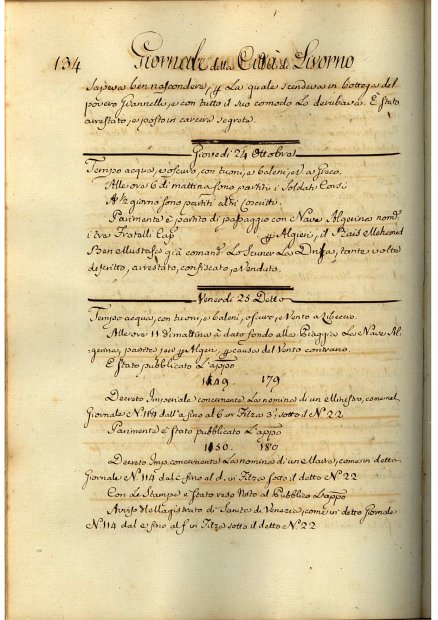 134 Giornale della Città di Livorno
sapeva ben nascondere, p La quale scendeva in bottega del
povero Giannelli, e con tutto il suo comodo Lo derubava. È stato
arrestato, e posto in carcere segreta.
Giovedi 24 Ottobre
Tempo acqua, e oscuro, con tuoni, e baleni, e V. a Greco.
Alle ore 6 di mattina sono partiti i Soldati Corsi
A ½ giorno sono partiti altri Coscritti
Parimente è partito di passaggio con Nave Algerina nom.
i tre Fratelli Cap. p Algieri, il Rais Mehemed
Ben Mustafa già comand. Lo Scuner La Dnisa, tante volte
descritto, arrestato, confiscato, e venduto.
Venerdi 25 Detto
Tempo acqua, con tuoni, e baleni, oscuro, e Vento a Libeccio.
Alle ore 11 di mattina à dato fondo alla Piaggia La Nave Al-
gerina, partita jeri p Algieri p causa del Vento contrario.
È stato pubblicato L'appo
1149. 179
Decreto Imperiale concernente La nomina di un Ministro, come nel
Giornale N. 114 dall'a fino al b in Filza 3. sotto il N. 22
Parimente è stato pubblicato L'appo
1150. 180
Decreto Imp. concernente La nomina di un Maire, come in detto
Giornale N. 114 dal c fino al d. in Filza sotto il detto N. 22
Con Le Stampe è stato reso Noto al Pubblico L'appo
Avviso del Magistrato di Sanità di Venezia, come in detto Giornale
N. 114 dal e fino al f in Filza sotto il detto N. 22